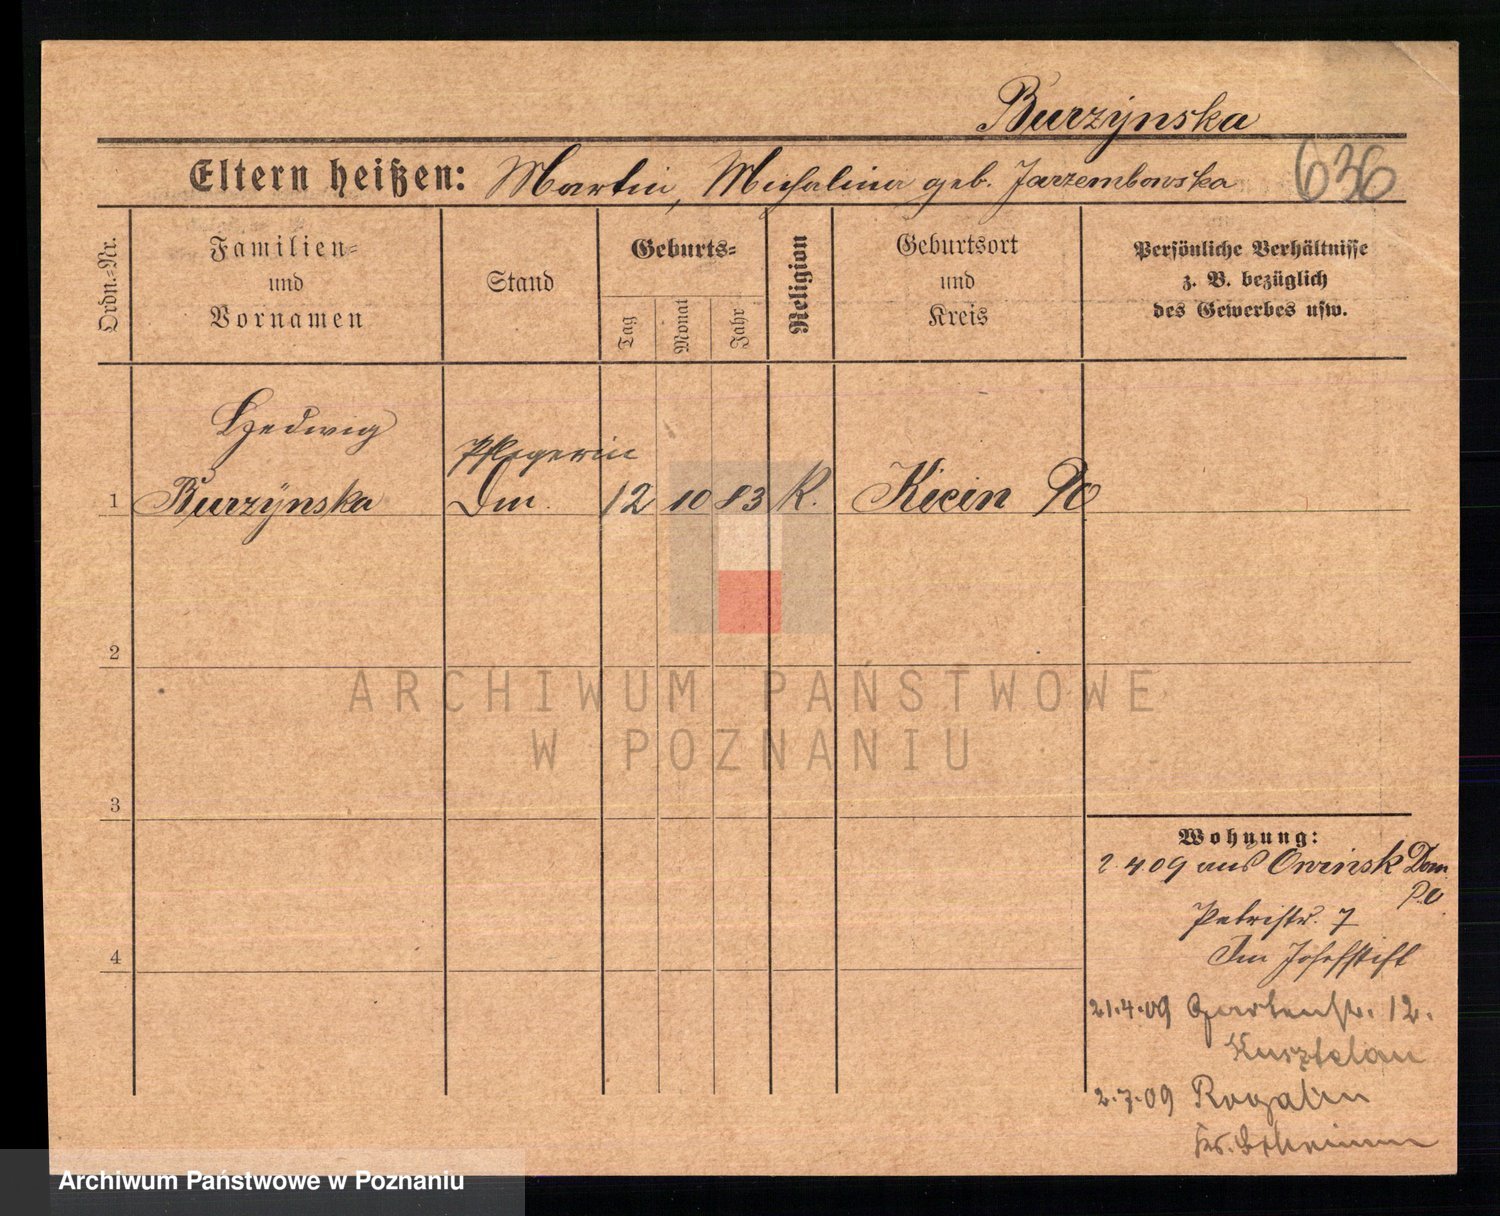 Burzÿnska
Eltern heißen: Martin, Michalina geb. Jarzembowska
636
Ordn.-Nr.
Familien-
und
Vornamen
Stand
Geburts-
Tag
Monat
Jahr
Religion
Geburtsort
und
Kreis
Persönliche Verhältnisse
z. B. bezüglich
des Gewerbes usw.
Hedwig
Pflegerin
1 Burzÿnska 12 10 83 K. Kicin PO
2
ARCHIWUM PAŃSTWOWE
W POZNANIU
3
Wohnung:
2.4.09 aus Owinsk Dom.
P.O.
Petristr. 7
Im Josefstift
4
21.4.09 Gartenstr. 12.
2.7.09 Rogalin
Kr. Schrimm
Archiwum Państwowe w Poznaniu